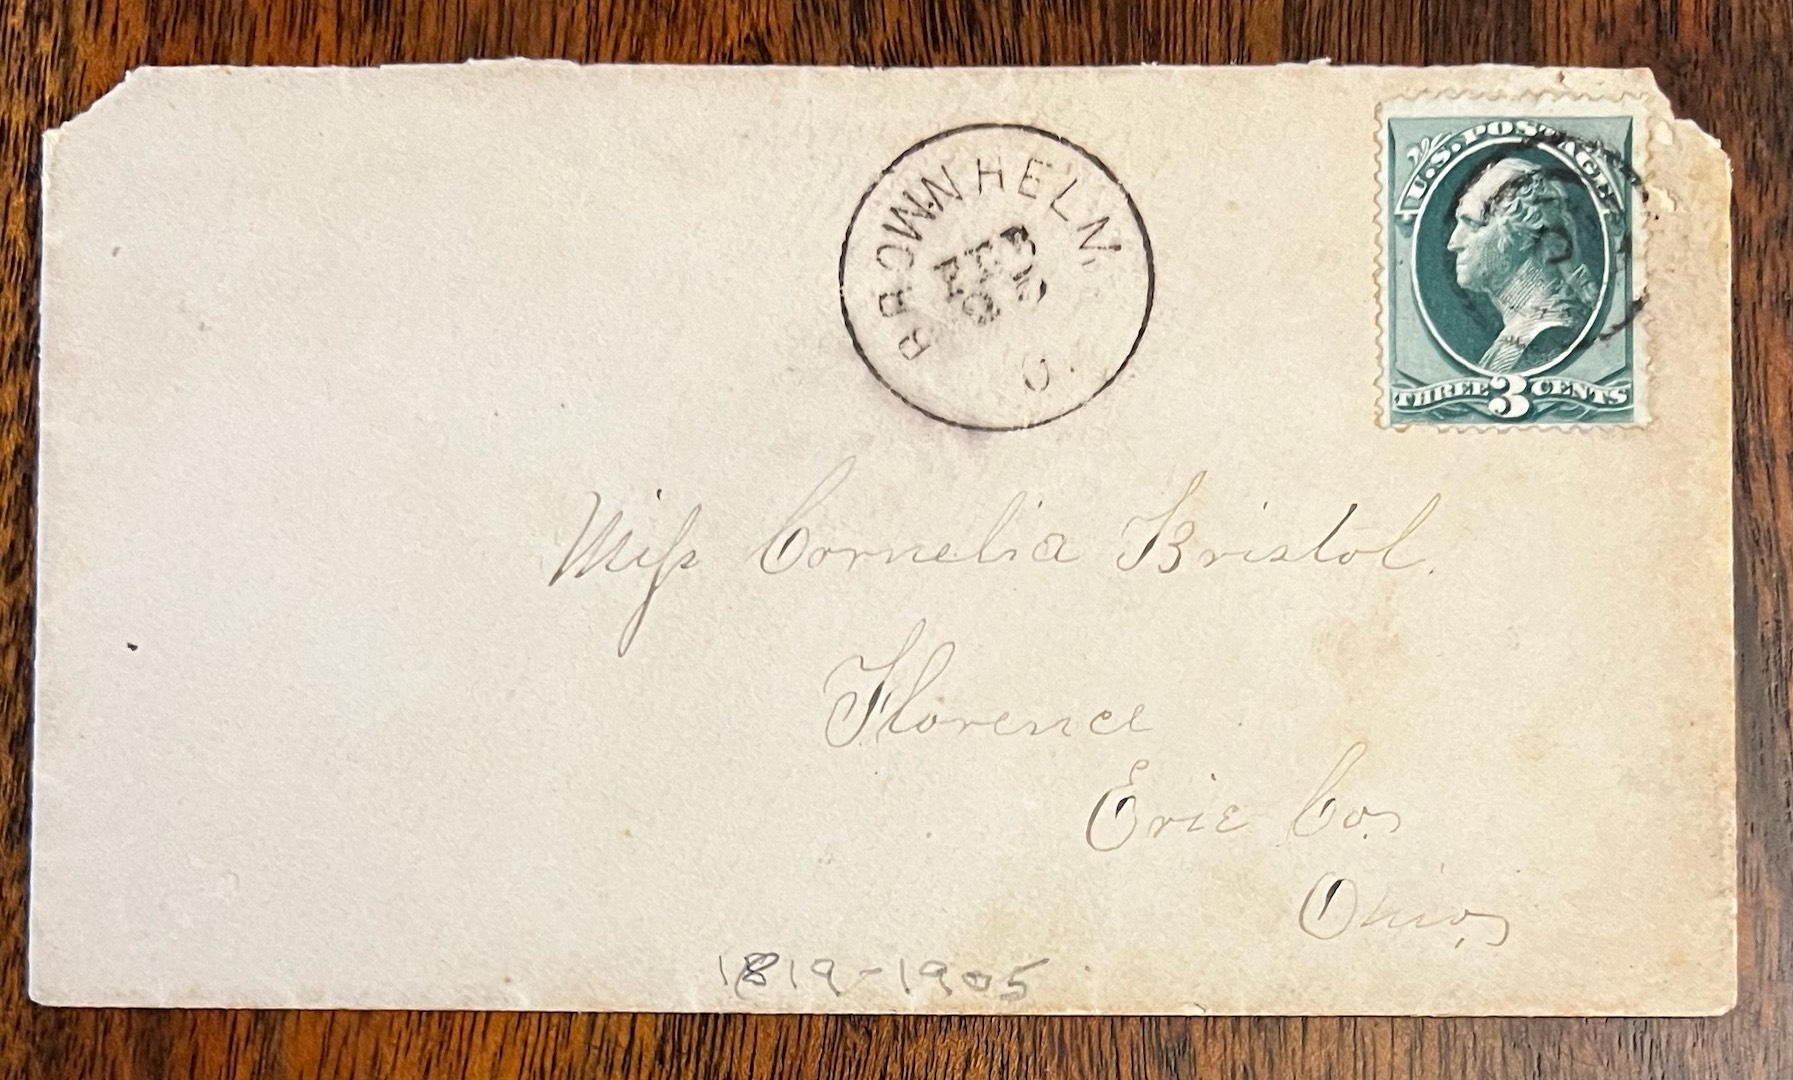 BROWNHELM.
FEB
O.
U.S. POSTAGE
THREE 3 CENTS
Miss Cornelia Bristol.
Florence
Erie Co.
Ohio,
1819-1905